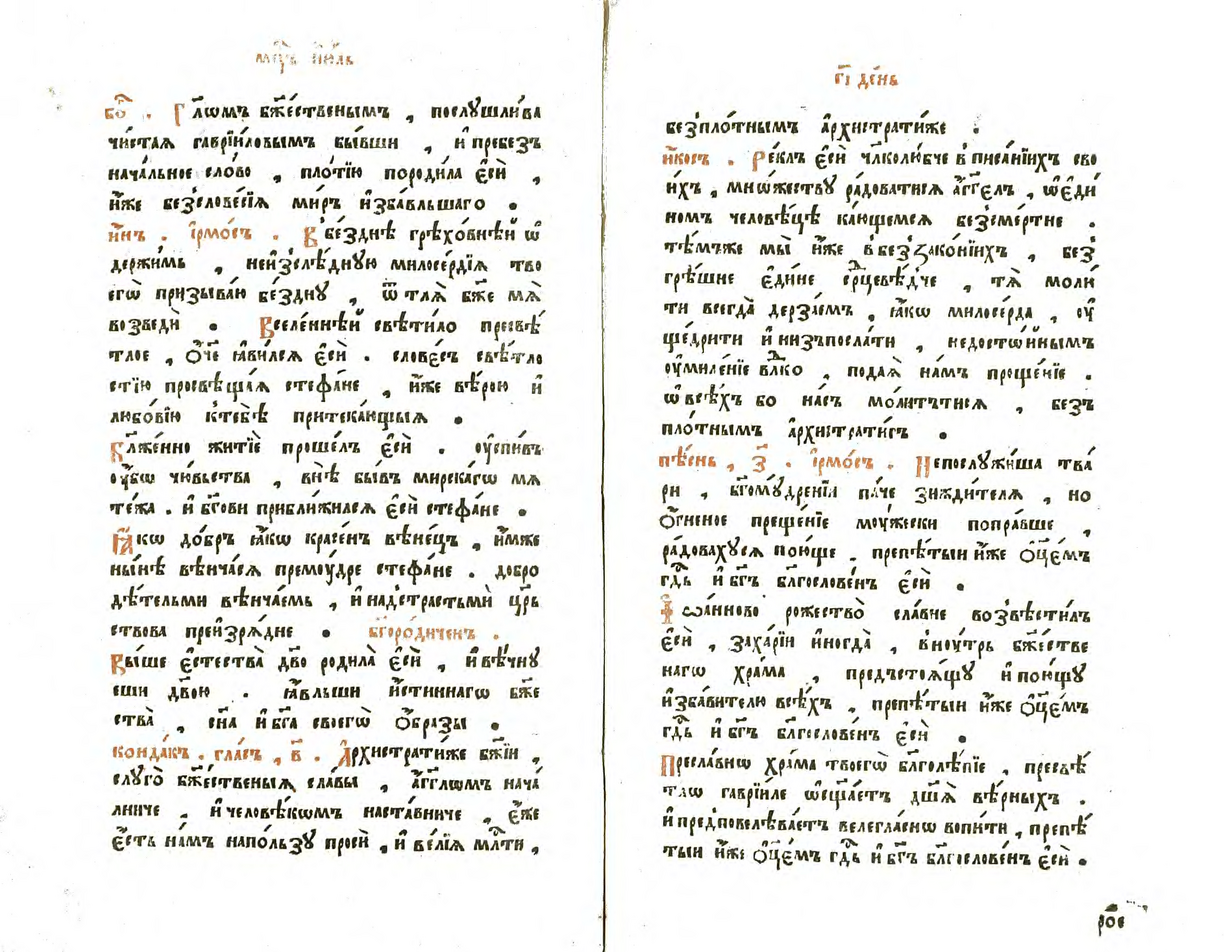 мц҃ъ і҆ю́ль
бо҃ . Гл҃ѡмъ бж҃е́ственымъ , послꙋшли́ва
чи́стаѧ гаврїи́ловымъ бы́вши , и҆ пребезъ
нача́льное сло́во , пло́тїю породила є҆сѝ ,
и҆́же безслове́сїѧ ми́ръ и҆зба́вльшаго .
и҆́нъ . і҆рмо́съ . В бе́зднѣ грѣхо́внѣй ѡ҆
держи́мь , неизслѣ́днꙋю милосе́рдїѧ тво
егѡ̀ призыва́ю бе́зднꙋ , ѿ тлѧ̀ бж҃е мѧ̀
возведѝ . Вселе́ннѣй свѣти́ло пресвѣ́
тлое , ѻ҆́ч҃е ꙗ҆ви́лсѧ є҆сѝ . слове́съ свѣ́тло
стїю просвѣща́ѧ стефа́не , и҆́же вѣ́рою и҆
любо́вїю к̾тебѣ̀ притека́ющыѧ .
Бл҃же́нно житїѐ проше́лъ є҆сѝ . ᲂу҆спи́въ
ᲂу҆́бѡ чю́вьства , внѣ̀ бы́въ мирска́гѡ мѧ
те́жа . и҆ бг҃ови прибли́жилсѧ є҆сѝ стефа́не .
Ꙗ҆́кѡ до́бръ ꙗ҆́кѡ кра́сенъ вѣне́цъ , и҆́мже
ны́нѣ вѣнча́сѧ премꙋ́дре стефа́не . добро
дѣ́тельми вѣнча́емь , и҆ над̾стра́стьмѝ цр҃ь
ствова преи҆зрѧ́дне . бг҃оро́диченъ .
Вы́ше є҆стества̀ дв҃о родила̀ є҆сѝ , и҆ вѣ́чнꙋ
еши дв҃ою . ꙗ҆́вльши и҆́стиннагѡ бж҃е
ства̀ , сн҃а и҆ бг҃а своегѡ̀ ѻ҆́бразы .
конда́къ . гла́съ , в҃ . А҆рхистрати́же бж҃їи ,
слꙋго̀ бж҃е́ственыѧ сла́вы , а҆́гг҃лѡмъ нача́
лниче , и҆ человѣ́кѡмъ наста́вниче , є҆́же
є҆́сть на́мъ напо́льзꙋ просѝ , и҆ ве́лїѧ мл҃ти ,
г҃і де́нь
без̾пло́тнымъ а҆рхистрати́же .
и҆́косъ . Ре́клъ є҆сѝ чл҃колю́бче в̾писа́нїихъ сво
и́хъ , мно́жествꙋ ра́доватисѧ а҆́гг҃елъ , ѡ҆ є҆ди́
номъ человѣ́цѣ ка́ющемсѧ безсме́ртне .
тѣ́мъже мы̀ и҆́же в̾беззако́нїихъ , без̾
грѣ́шне є҆ди́не ср҃цевѣ́дче , тѧ̀ моли
ти всегда̀ дерза́емъ , ꙗ҆́кѡ милосе́рда , ᲂу҆
ще́дрити и҆ низъпосла́ти , недосто́йнымъ
ᲂу҆миле́нїе влⷣко , пода́ѧ на́мъ проще́нїе .
ѡ҆ всѣ́хъ бо на́съ мо́литътисѧ , безъ
пло́тнымъ а҆рхистрати́гъ .
пѣ́снь , з҃ . і҆рмо́съ . Непослꙋжи́ша тва́
ри , бг҃омꙋ́дренїи па́че зижди́телѧ , но
ѻ҆́гненое преще́нїе мꙋ́жески попра́вше ,
ра́довахꙋсѧ пою́ще , препѣ́тыи и҆́же ѻ҆ц҃е́мъ
гдⷭ҇ь и҆ бг҃ъ бл҃гослове́нъ є҆сѝ .
І҆ѡа́нново рожество̀ сла́вне возвѣсти́лъ
є҆сѝ , заха́рїи и҆ногда̀ , внꙋ́трь бж҃е́стве
нагѡ хра́ма , предъстоѧ́щꙋ и҆ пою́щꙋ
и҆зба́вителю всѣ́хъ , препѣ́тыи и҆́же ѻ҆ц҃е́мъ
гдⷭ҇ь и҆ бг҃ъ бл҃гослове́нъ є҆сѝ .
Пресла́внѡ хра́ма твоегѡ̀ бл҃голѣ́пїе , пресвѣ́
тлѡ гаврїи́ле ѡ҆свѧща́етъ дш҃а̀ вѣ́рныхъ .
и҆ предповелѣва́етъ велегла́снѡ вопи́ти , препѣ́
тыи и҆́же ѻ҆ц҃е́мъ гдⷭ҇ь и҆ бг҃ъ бл҃гослове́нъ є҆сѝ .
ро҃е